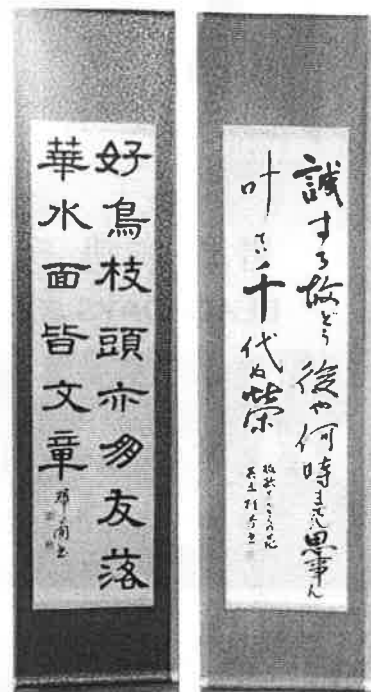 誠する故どう 後や何時までも思事ん
叶て 千代ぬ栄
好鳥枝頭亦多友落
華水面皆文章